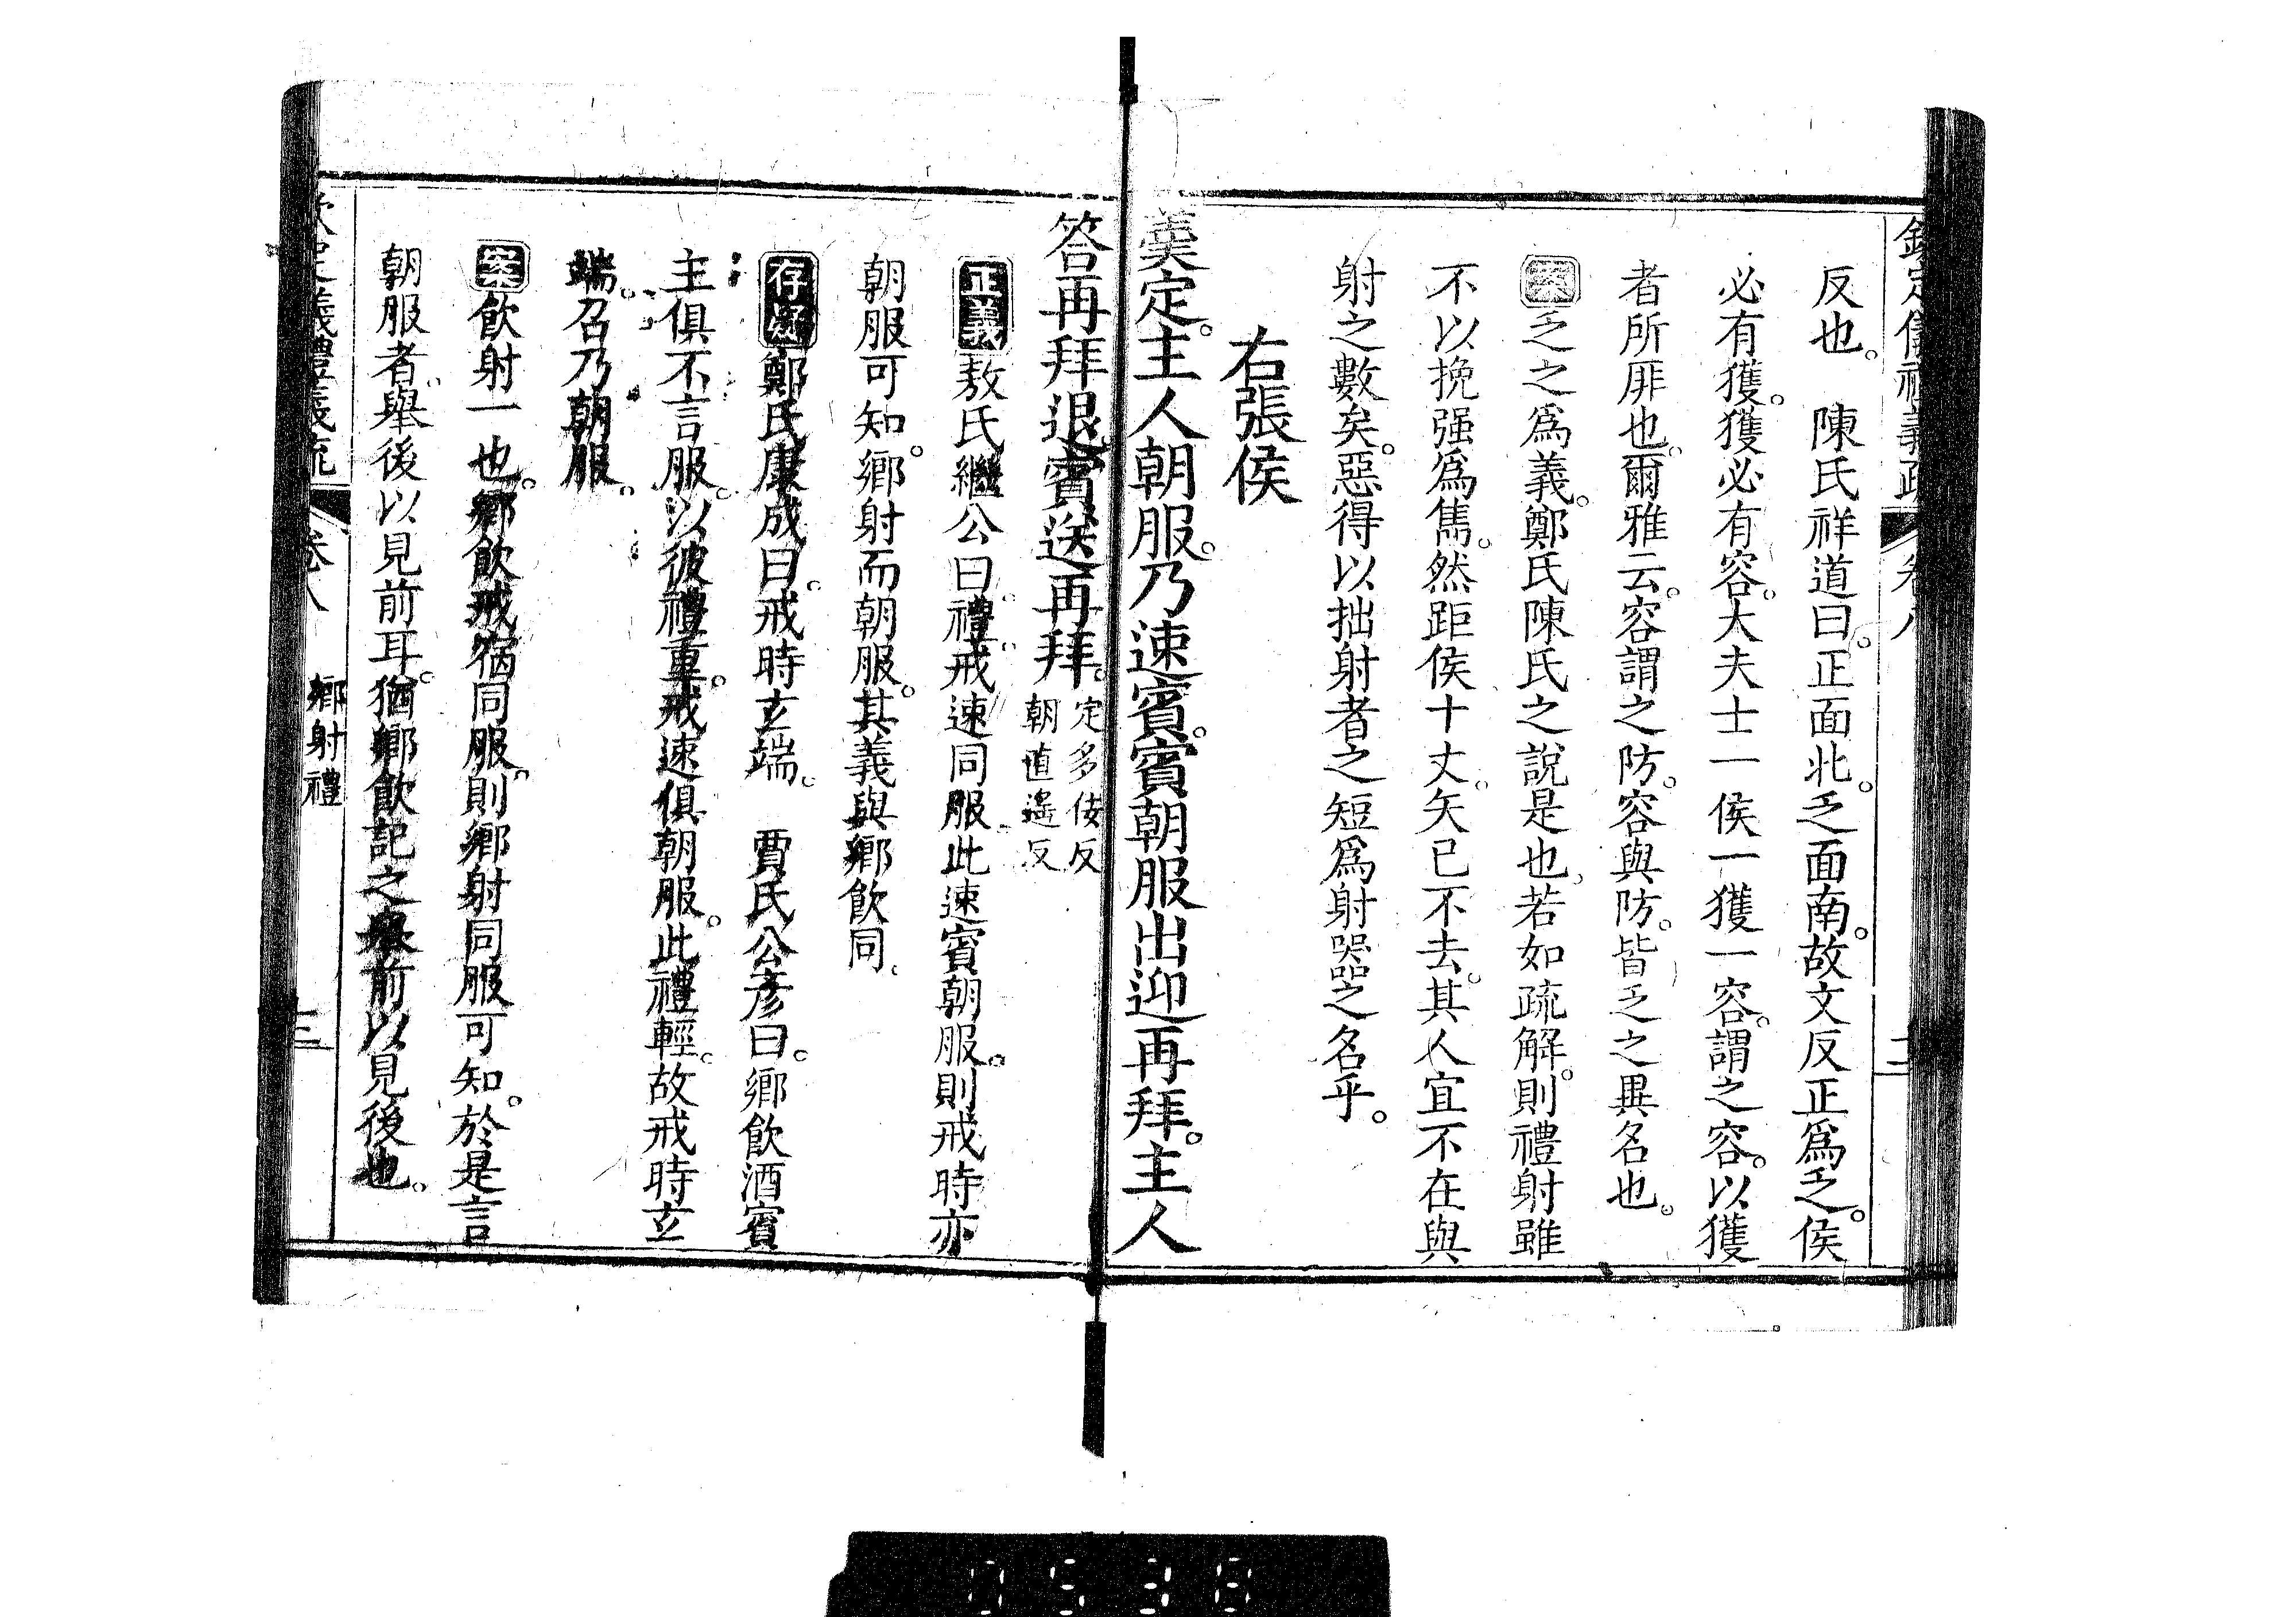 反也。　陳氏祥道曰。正面北。乏面南。故文反正爲乏。侯
必有獲。獲必有容。大夫士一侯一獲一容。謂之容。以獲
者所厞也。爾雅云。容謂之防。容與防。皆乏之異名也。
案乏之爲義。鄭氏陳氏之說是也。若如疏解。則禮射雖
不以挽强爲雋。然距侯十丈。矢已不去。其人宜不在與
射之數矣。惡得以拙射者之短爲射器之名乎。
右張侯
羹定。主人朝服。乃速賓。賓朝服出迎再拜。主人
答再拜退。賓送再拜。定多佞反
朝直遙反
正義敖氏繼公曰。禮。戒速同服。此速賓朝服。則戒時亦
朝服可知。鄉射而朝服。其義與鄉飲同。
存疑鄭氏康成曰。戒時玄端。　賈氏公彥曰。鄉飲酒賓
主俱不言服。以彼禮重。戒速俱朝服。此禮輕。故戒時玄
端。召乃朝服。
案飲射一也。鄉飲戒宿同服。則鄉射同服可知。於是言
朝服者。舉後以見前耳。猶鄉飲記之舉前以見後也。
鄉射禮